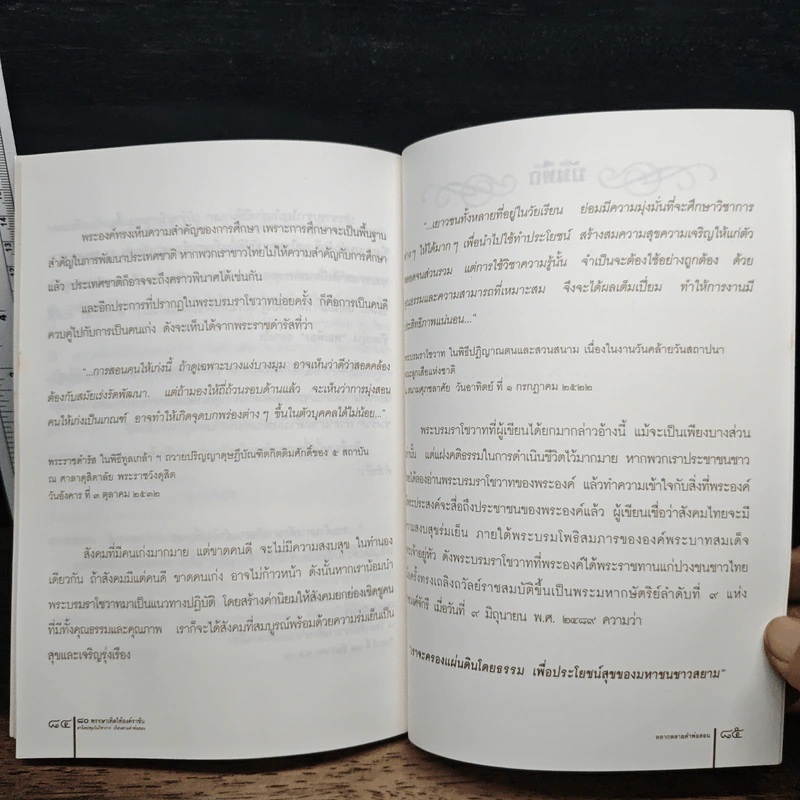 พระองค์ทรงเห็นความสำคัญของการศึกษา เพราะการศึกษาจะเป็นพื้นฐาน
สำคัญในการพัฒนาประเทศชาติ หากพวกเราชาวไทยไม่ให้ความสำคัญกับการศึกษา
แล้ว ประเทศชาติก็อาจจะถึงคราวพินาศได้เช่นกัน
และอีกประการที่ปรากฏในพระบรมราโชวาทบ่อยครั้ง ก็คือการเป็นคนดี
ควบคู่ไปกับการเป็นคนเก่ง ดังจะเห็นได้จากพระราชดำรัสที่ว่า
“...การสอนคนให้เก่งนี้ ถ้าดูเฉพาะบางแง่บางมุม อาจเห็นว่าดีว่าสอดคล้อง
ต้องกับสมัยเร่งรัดพัฒนา. แต่ถ้ามองให้ถี่ถ้วนรอบด้านแล้ว จะเห็นว่าการมุ่งสอน
คนให้เก่งเป็นเกณฑ์ อาจทำให้เกิดจุดบกพร่องต่าง ๆ ขึ้นในตัวบุคคลได้ไม่น้อย...”
พระราชดำรัส ในพิธีทูลเกล้า ฯ ถวายปริญญาดุษฎีบัณฑิตกิตติมศักดิ์ของ ๕ สถาบัน
ณ ศาลาดุสิดาลัย พระราชวังดุสิต
วันอังคาร ที่ ๓ ตุลาคม ๒๕๓๒
สังคมที่มีคนเก่งมากมาย แต่ขาดคนดี จะไม่มีความสงบสุข ในทำนอง
เดียวกัน ถ้าสังคมมีแต่คนดี ขาดคนเก่ง อาจไม่ก้าวหน้า ดังนั้นหากเราน้อมนำ
พระบรมราโชวาทมาเป็นแนวทางปฏิบัติ โดยสร้างค่านิยมให้สังคมยกย่องเชิดชูคน
ที่มีทั้งคุณธรรมและคุณภาพ เราก็จะได้สังคมที่สมบูรณ์พร้อมด้วยความร่มเย็นเป็น
สุขและเจริญรุ่งเรือง
๘๔ ๘๐ พรรษาเทิดไท้องค์ราชัน
“...เยาวชนทั้งหลายที่อยู่ในวัยเรียน ย่อมมีความมุ่งมั่นที่จะศึกษาวิชาการ
ต่าง ๆ ให้ได้มาก ๆ เพื่อนำไปใช้ทำประโยชน์ สร้างสมความสุขความเจริญให้แก่ตัว
ตลอดจนส่วนรวม แต่การใช้วิชาความรู้นั้น จำเป็นจะต้องใช้อย่างถูกต้อง ด้วย
คุณธรรมและความสามารถที่เหมาะสม จึงจะได้ผลเต็มเปี่ยม ทำให้การงานมี
ประสิทธิภาพแน่นอน...”
พระบรมราโชวาท ในพิธีปฏิญาณตนและสวนสนาม เนื่องในงานวันคล้ายวันสถาปนา
คณะลูกเสือแห่งชาติ
ณ สนามศุภชลาศัย วันอาทิตย์ ที่ ๑ กรกฎาคม ๒๕๒๒
พระบรมราโชวาทที่ผู้เขียนได้ยกมากล่าวอ้างนี้ แม้จะเป็นเพียงบางส่วน
เท่านั้น แต่แฝงคติธรรมในการดำเนินชีวิตไว้มากมาย หากพวกเราประชาชนชาว
ไทยได้ลองอ่านพระบรมราโชวาทของพระองค์ แล้วทำความเข้าใจกับสิ่งที่พระองค์
ทรงประสงค์จะสื่อถึงประชาชนของพระองค์แล้ว ผู้เขียนเชื่อว่าสังคมไทยจะมี
ความสงบสุขร่มเย็น ภายใต้พระบรมโพธิสมภารขององค์พระบาทสมเด็จ
พระเจ้าอยู่หัว ดังพระบรมราโชวาทที่พระองค์ได้พระราชทานแก่ปวงชนชาวไทย
เมื่อครั้งทรงเถลิงถวัลย์ราชสมบัติขึ้นเป็นพระมหากษัตริย์ลำดับที่ ๙ แห่ง
ราชวงศ์จักรี เมื่อวันที่ ๙ มิถุนายน พ.ศ. ๒๔๘๙ ความว่า
“เราจะครองแผ่นดินโดยธรรม เพื่อประโยชน์สุขของมหาชนชาวสยาม”
หลากหลายคำพ่อสอน ๘๕